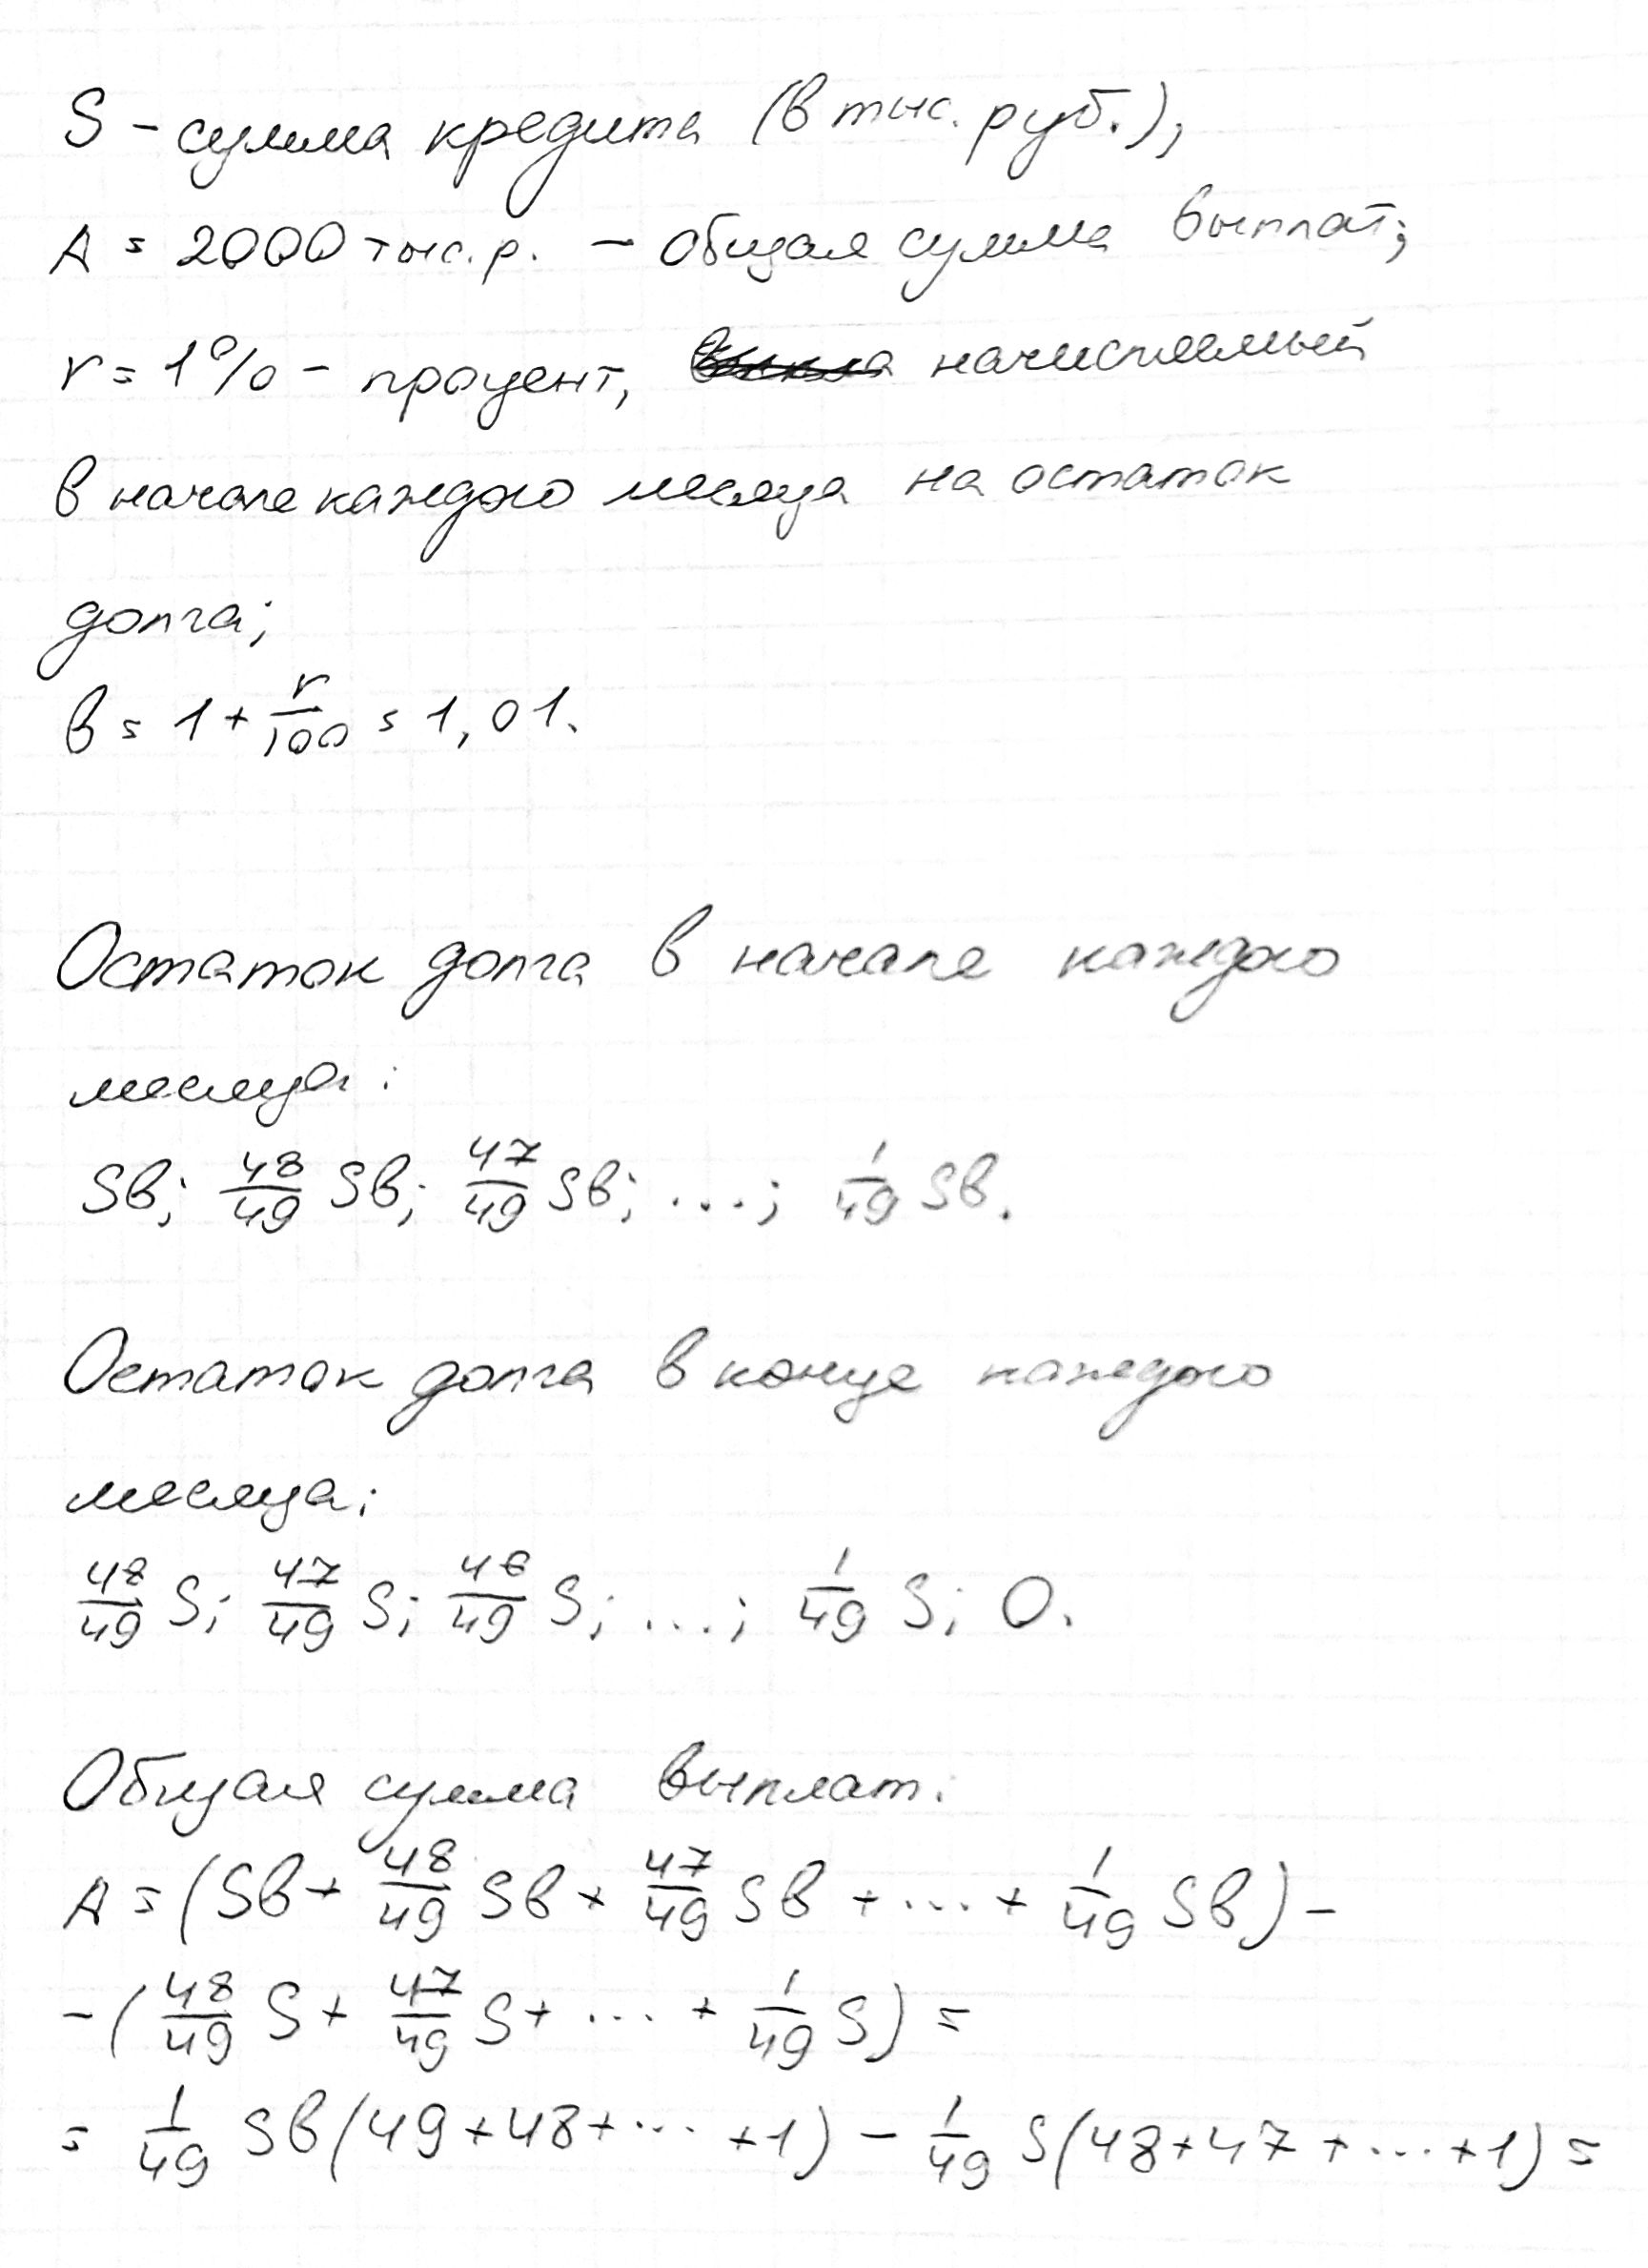 S – сумма кредита (в тыс. руб.);
A = 2000 тыс. р. – общая сумма выплат;
r = 1% – процент, начисляемый
в начале каждого месяца на остаток
долга;
b = 1 + r/100 = 1,01.
Остаток долга в начале каждого
месяца:
Sb; 48/49 Sb; 47/49 Sb; ...; 1/49 Sb.
Остаток долга в конце каждого
месяца:
48/49 S; 47/49 S; 46/49 S; ...; 1/49 S; 0.
Общая сумма выплат:
A = (Sb + 48/49 Sb + 47/49 Sb + ... + 1/49 Sb) –
– (48/49 S + 47/49 S + ... + 1/49 S) =
= 1/49 Sb (49 + 48 + ... + 1) – 1/49 S (48 + 47 + ... + 1) =